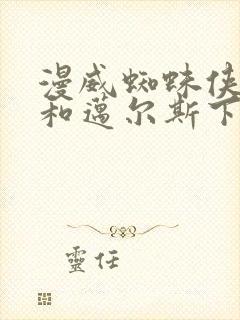 漫威蜘蛛侠
和邁尔斯下
靈任